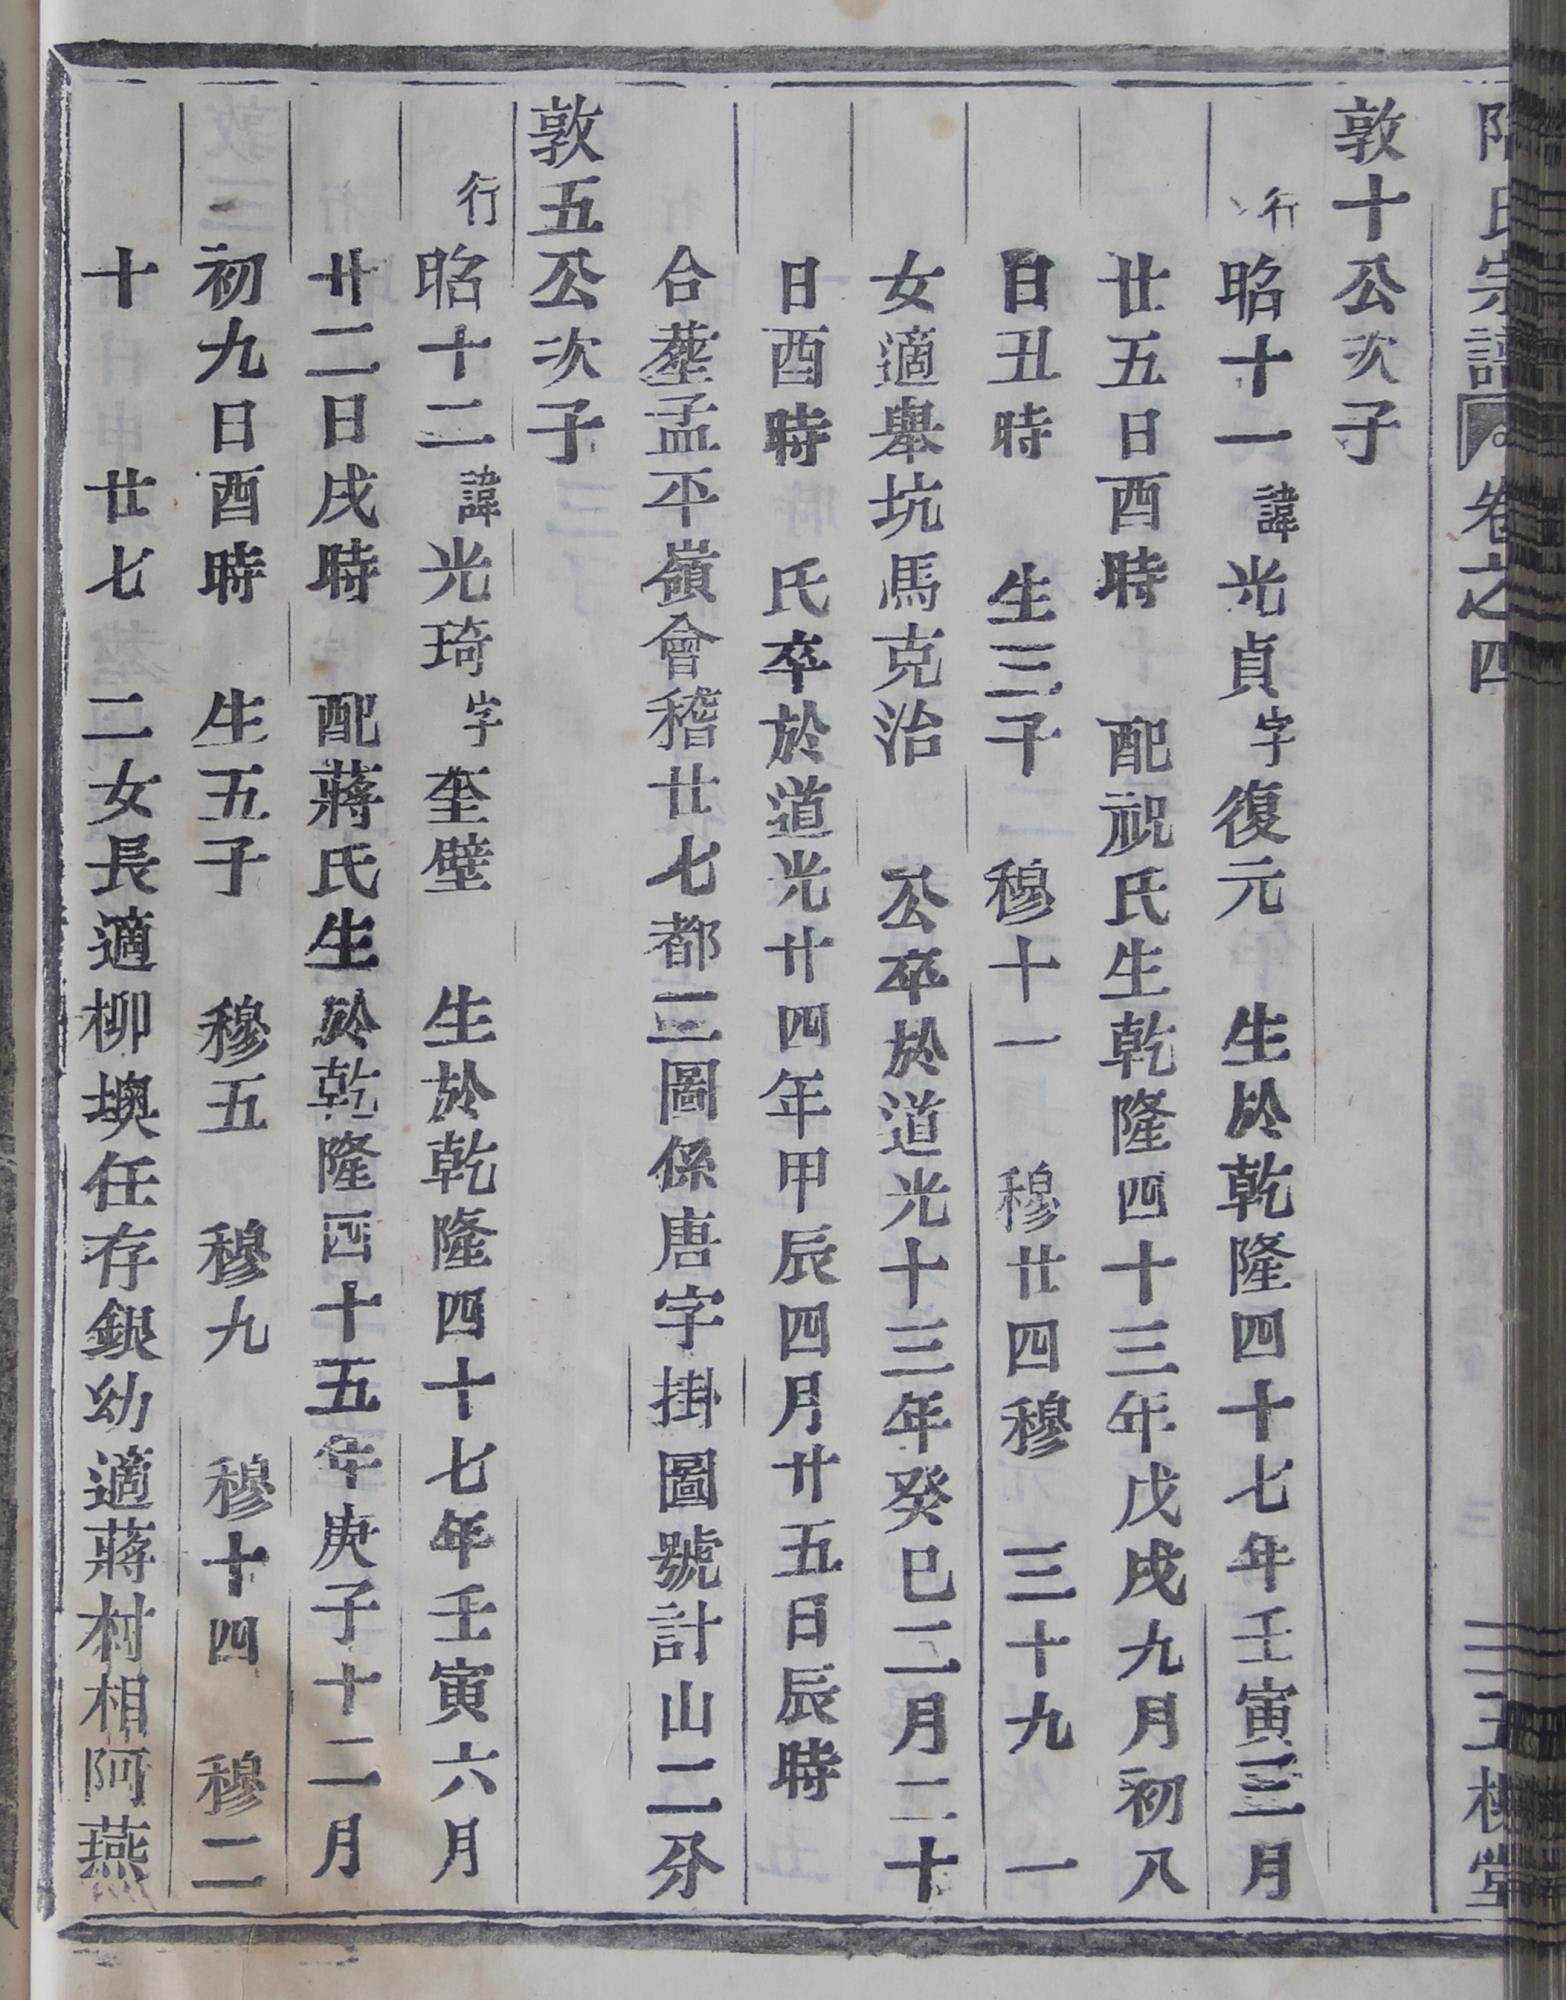 氏宗譜 卷之四 三槐堂
敦十公次子
行昭十一諱光貞字復元 生於乾隆四十七年壬寅三月
廿五日酉時 配祝氏生乾隆四十三年戊戌九月初八
日丑時 生三子 穆十一 穆廿四穆三十九 一
女適舉坑馬克治 公卒於道光十三年癸巳二月二十
日酉時 氏卒於道光廿四年甲辰四月廿五日辰時
合塟孟平嶺會稽廿七都三圖係唐字掛圖號計山二分
敦五公次子
行昭十二諱光琦字奎壁 生於乾隆四十七年壬寅六月
廿二日戌時 配蔣氏生於乾隆四十五年庚子十二月
初九日酉時 生五子 穆五 穆九 穆十四 穆二
十 廿七 二女長適柳墺任存銀幼適蔣村相阿燕